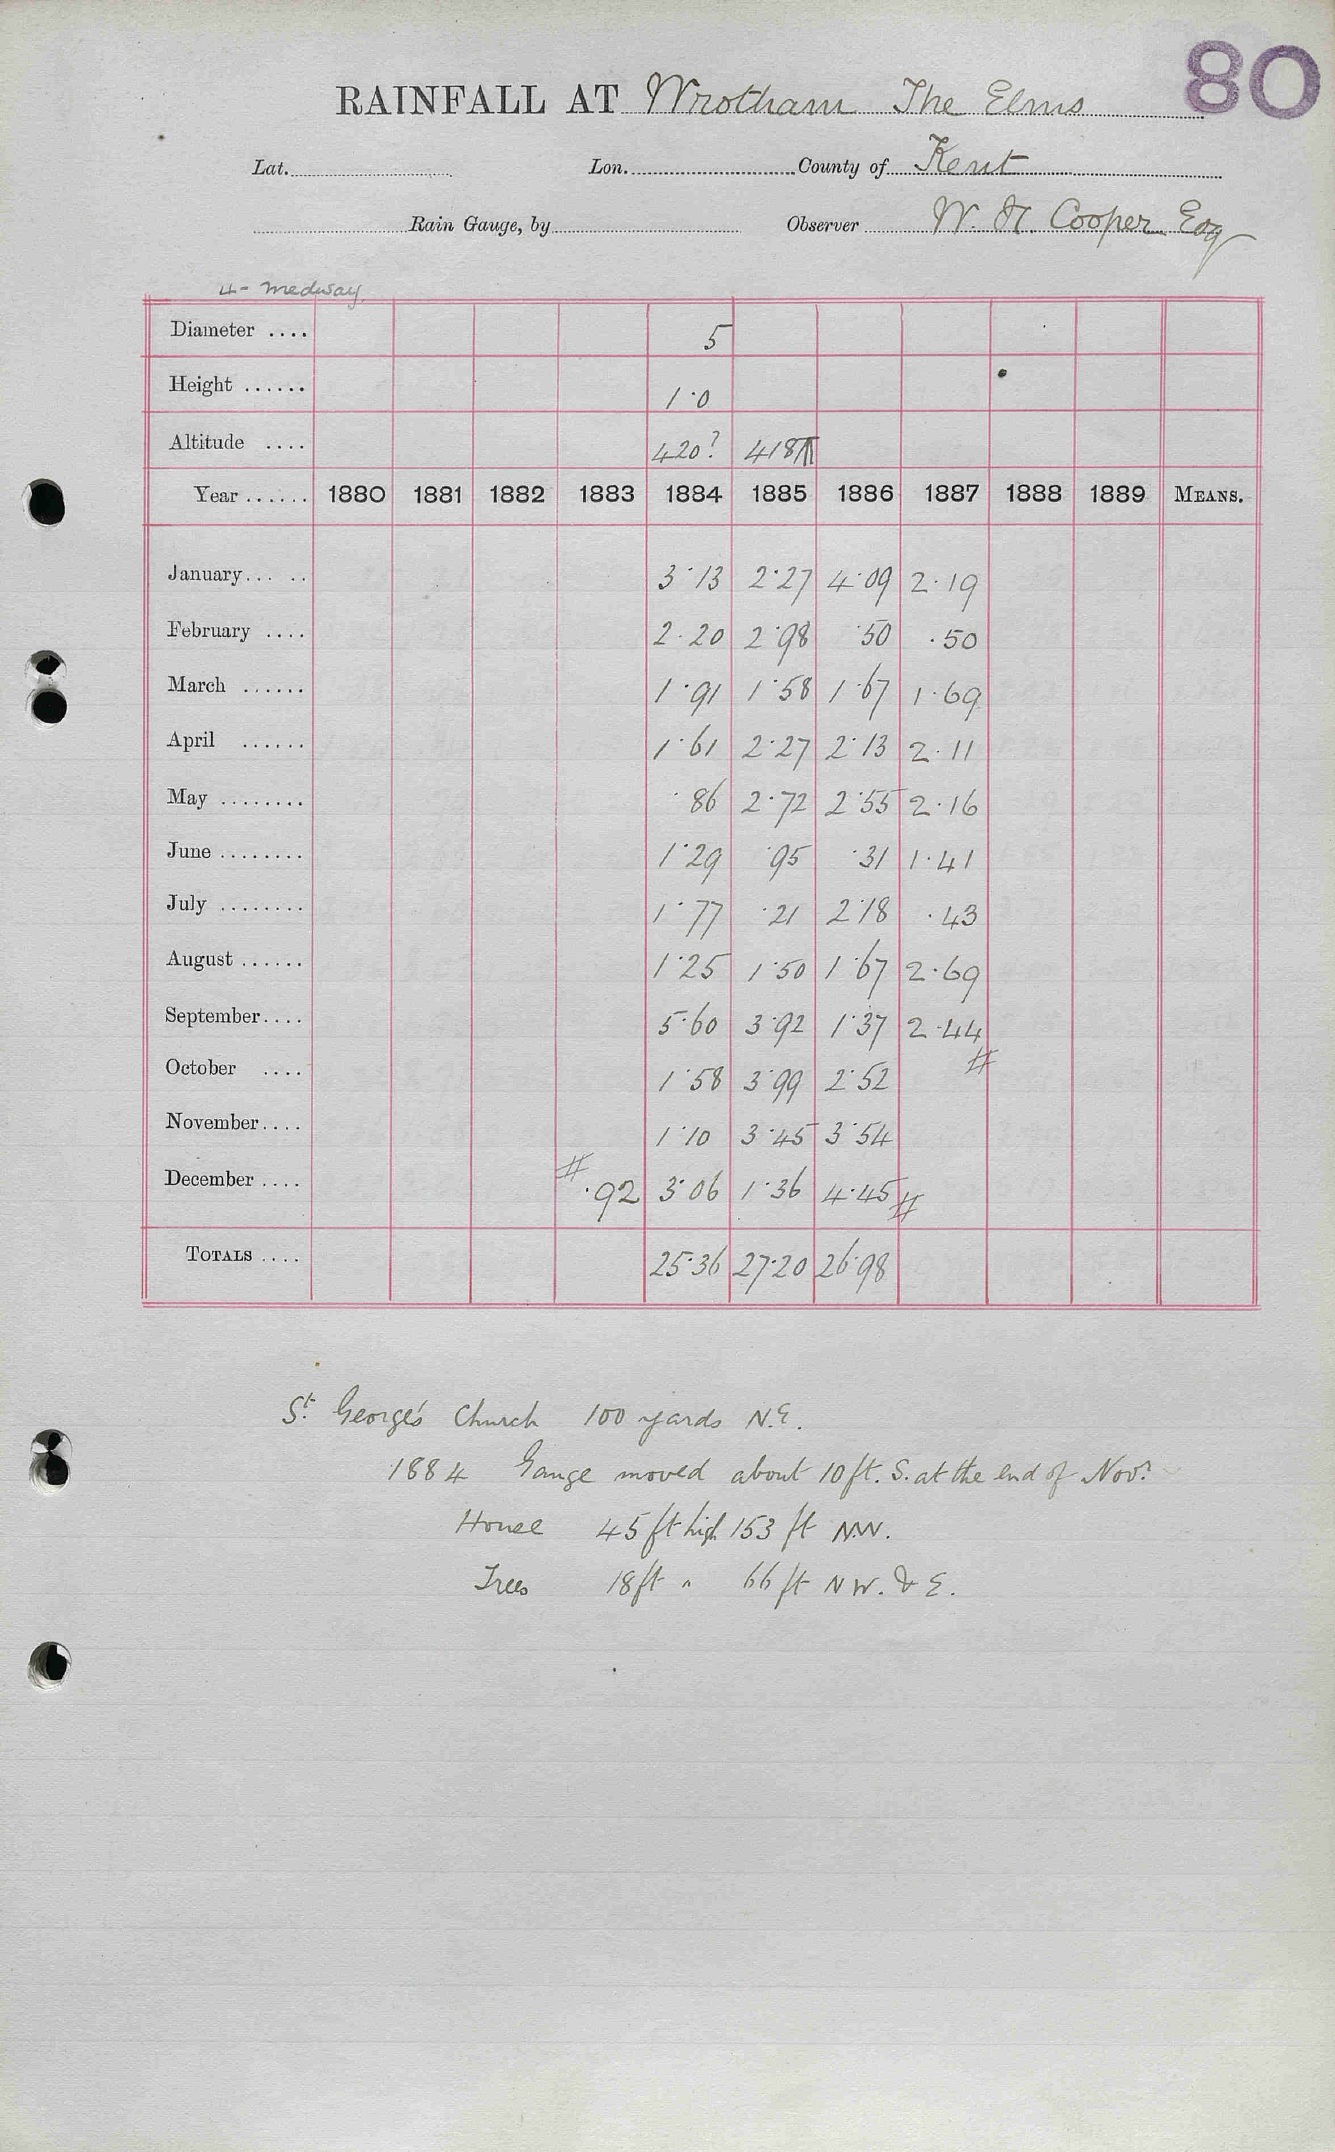 80
RAINFALL AT Wrotham The Elms
Lat. Lon. County of Kent
Rain Gauge, by Observer W. H. Cooper Esq
4- Medway
Diameter .... 5
Height ...... 1·0
Altitude .... 420? 418
Year ...... 1880 1881 1882 1883 1884 1885 1886 1887 1888 1889 MEANS.
January... .. 3·13 2·27 4·09 2·19
February .... 2·20 2·98 ·50 ·50
March ...... 1·91 1·58 1·67 1·69
April ...... 1·61 2·27 2·13 2·11
May ........ ·86 2·72 2·55 2·16
June ........ 1·29 ·95 ·31 1·41
July ........ 1·77 ·21 2·18 ·43
August ...... 1·25 1·50 1·67 2·69
September.... 5·60 3·92 1·37 2·44
October .... 1·58 3·99 2·52 #
November.... 1·10 3·45 3·54
December .... # ·92 3·06 1·36 4·45 #
TOTALS .... 25·36 27·20 26·98
St. George's Church 100 yards N.E.
1884 Gauge moved about 10 ft. S. at the end of Novr.
House 45 ft high 153 ft N.W.
Trees 18 ft " 66 ft N W. & E.